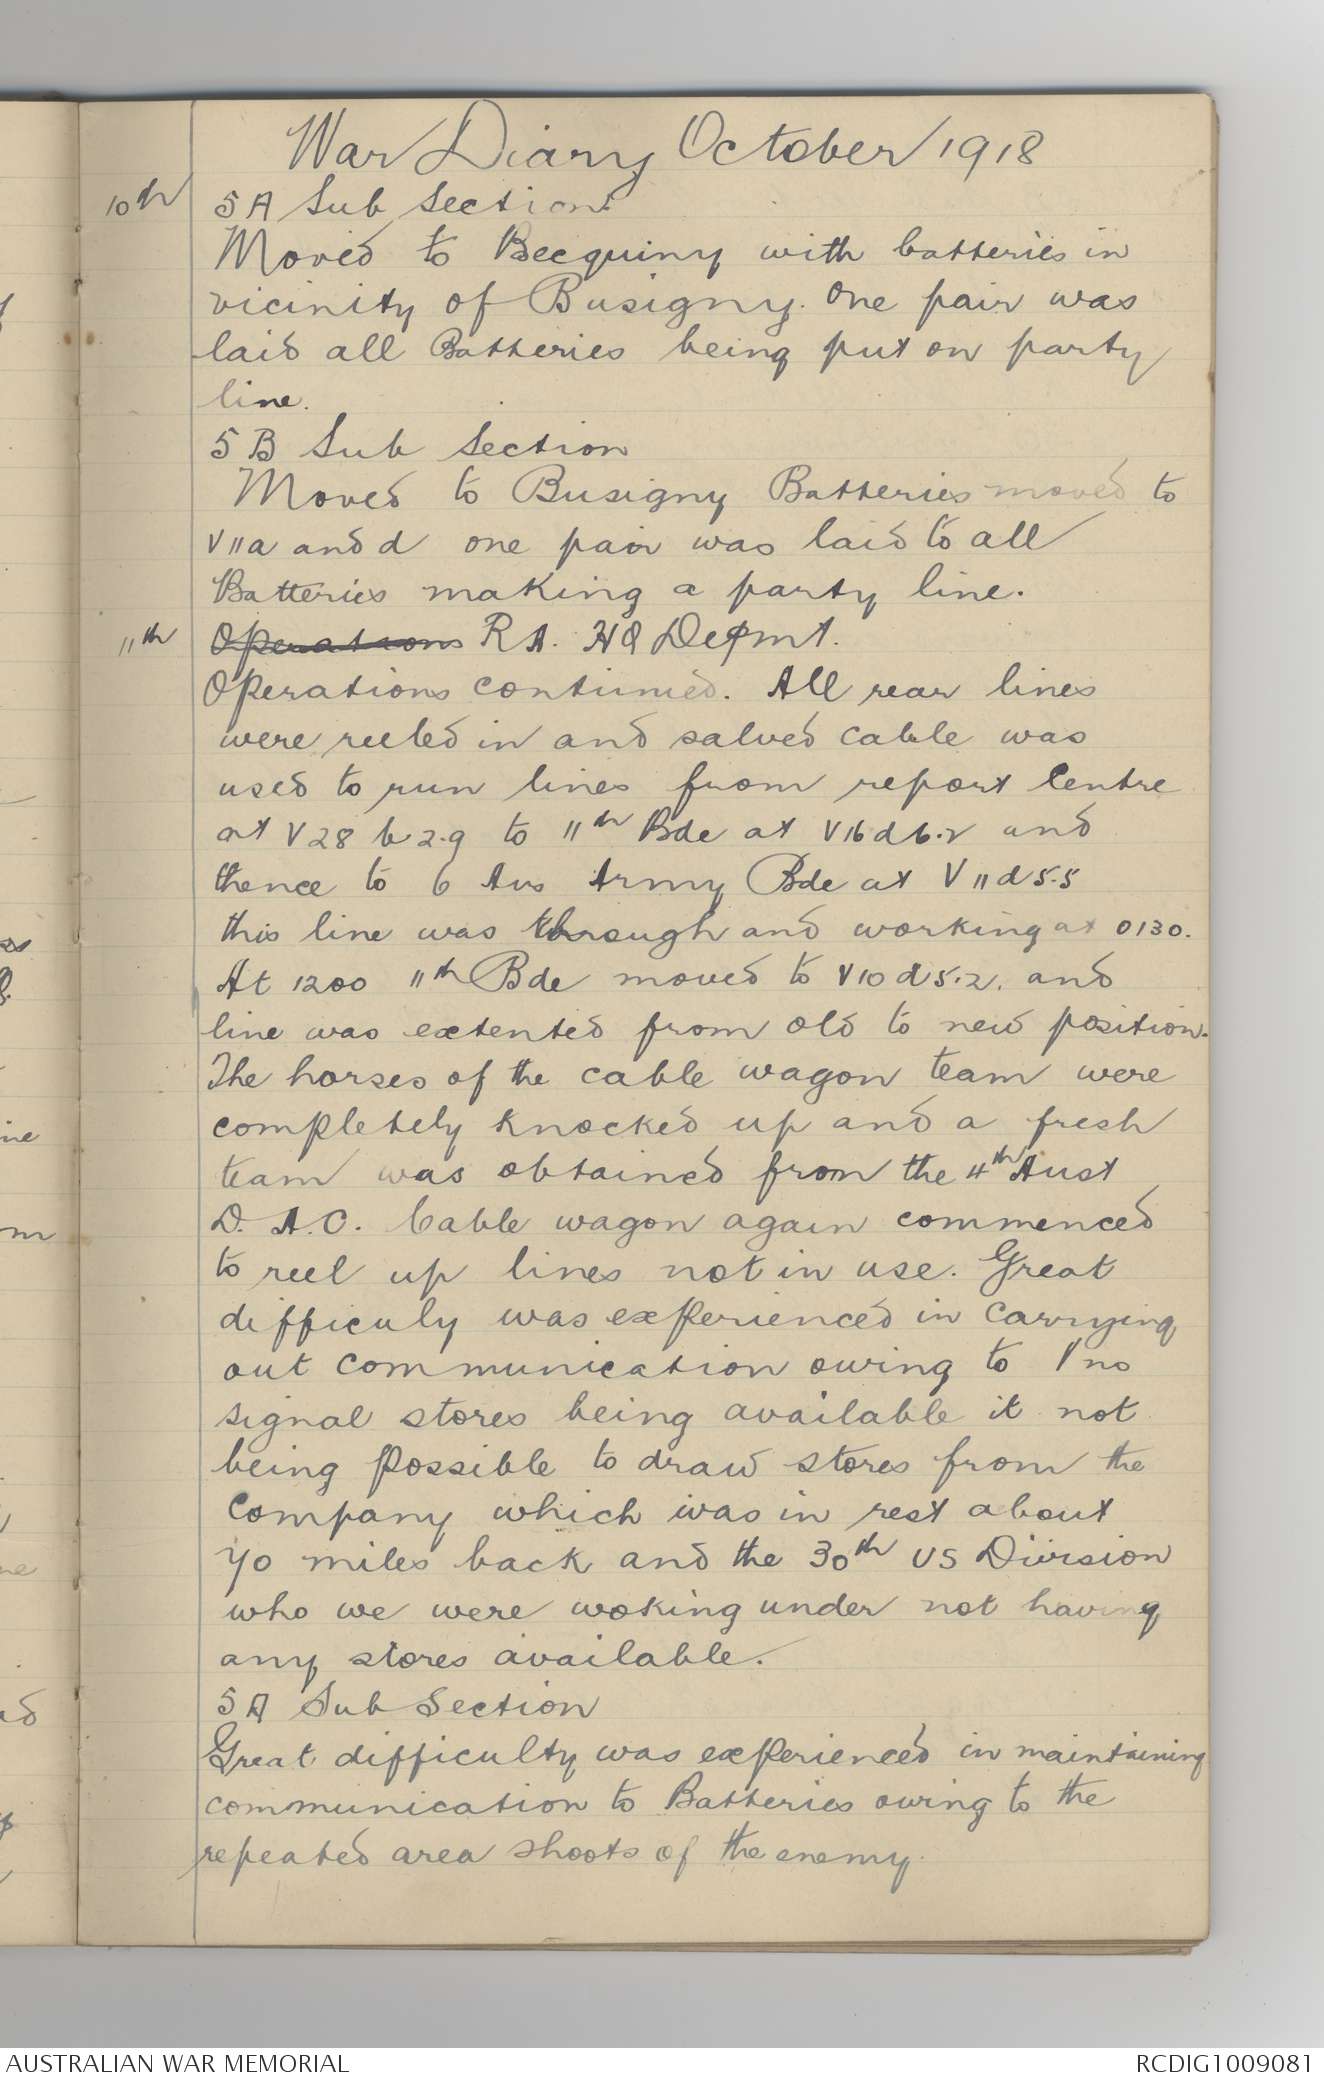 War Diary October 1918
10th 5A Sub Section
Moved to Becquiny with batteries in
vicinity of Busigny. One pair was
laid all Batteries being put on party
line.
5 B Sub Section
Moved to Busigny Batteries moved to
V11a and d one pair was laid to all
Batteries making a party line.
11th Operations R A. HQ Detmt.
Operations continued. All rear lines
were reeled in and salved cable was
used to run lines from report Centre
at V28 b 2.9 to 11th Bde at V16d6.2 and
thence to 6 Aus Army Bde at V11d5.5
this line was through and working at 0130.
At 1200 11th Bde moved to V10d5.2. and
line was extented from old to new position.
The horses of the cable wagon team were
completely knocked up and a fresh
team was obtained from the 4th Aust
D. A.C. Cable wagon again commenced
to reel up lines not in use. Great
difficuly was experienced in carrying
out communication owing to no
signal stores being available it not
being possible to draw stores from the
Company which was in rest about
70 miles back and the 30th US Division
who we were woking under not having
any stores available.
5A Sub Section
Great difficulty was experienced in maintaining
communication to Batteries owing to the
repeated area shoots of the enemy.
AUSTRALIAN WAR MEMORIAL
RCDIG1009081